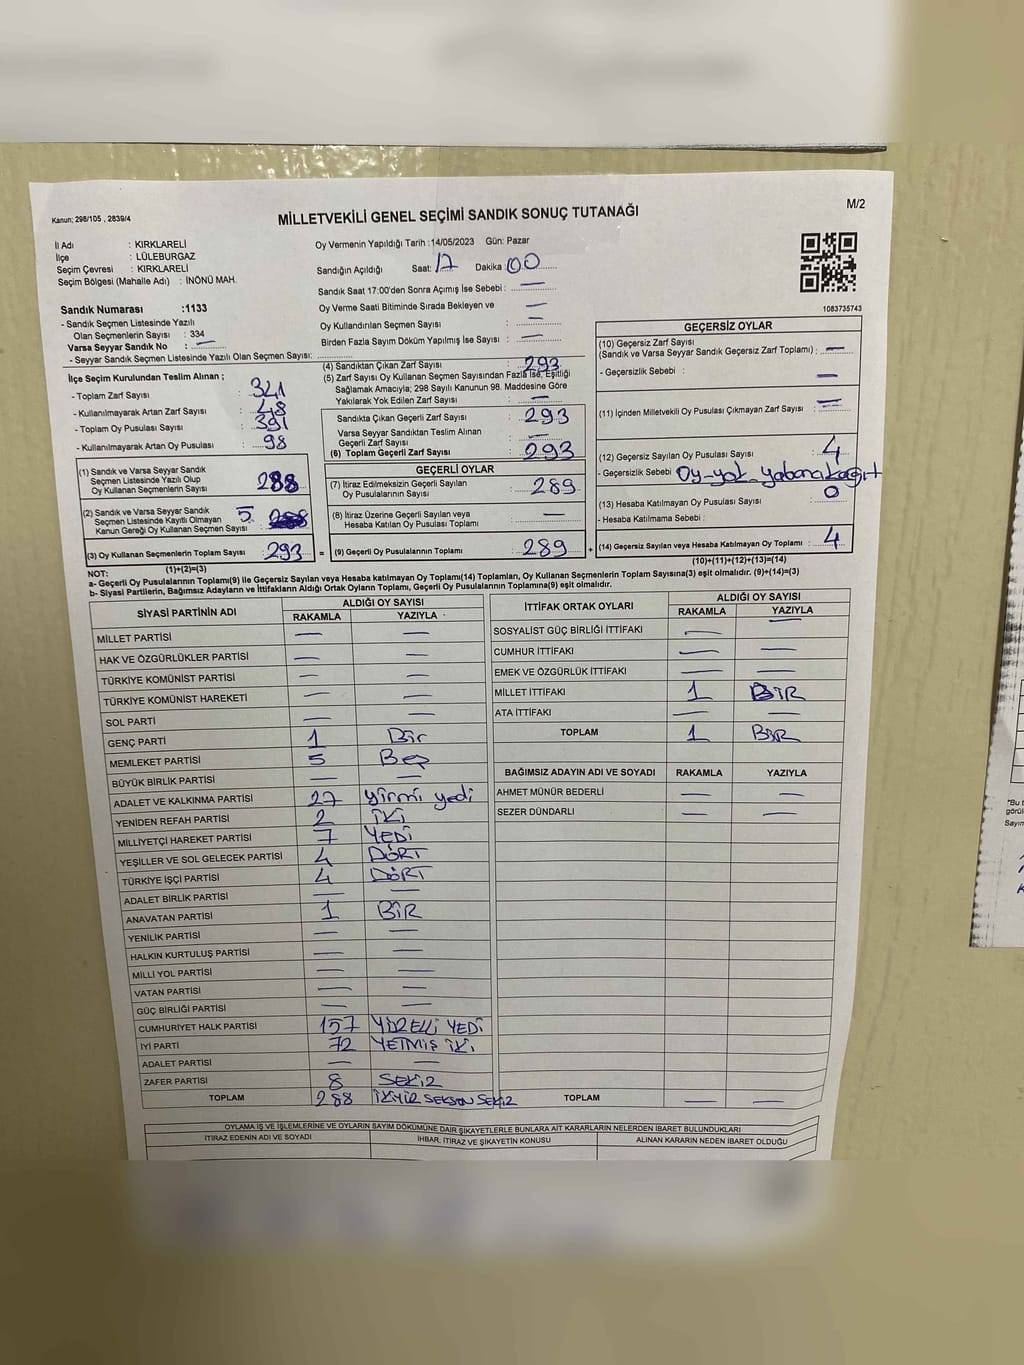 Kanun; 298/105 , 2839/4
MİLLETVEKİLİ GENEL SEÇİMİ SANDIK SONUÇ TUTANAĞI
M/2
İl Adı : KIRKLARELİ
İlçe : LÜLEBURGAZ
Seçim Çevresi : KIRKLARELİ
Seçim Bölgesi (Mahalle Adı) : İNÖNÜ MAH.
Oy Vermenin Yapıldığı Tarih :14/05/2023 Gün: Pazar
Sandığın Açıldığı Saat: 17 Dakika : 00
Sandık Saat 17:00'den Sonra Açımış İse Sebebi : —
Oy Verme Saati Bitiminde Sırada Bekleyen ve
Oy Kullandırılan Seçmen Sayısı : —
Birden Fazla Sayım Döküm Yapılmış İse Sayısı : —
1083735743
Sandık Numarası :1133
- Sandık Seçmen Listesinde Yazılı
Olan Seçmenlerin Sayısı : 334
Varsa Seyyar Sandık No : —
- Seyyar Sandık Seçmen Listesinde Yazılı Olan Seçmen Sayısı:
İlçe Seçim Kurulundan Teslim Alınan ;
- Toplam Zarf Sayısı : 341
- Kullanılmayarak Artan Zarf Sayısı : 48
- Toplam Oy Pusulası Sayısı : 391
- Kullanılmayarak Artan Oy Pusulası : 98
(1) Sandık ve Varsa Seyyar Sandık
Seçmen Listesinde Yazılı Olup
Oy Kullanan Seçmenlerin Sayısı : 288
(2) Sandık ve Varsa Seyyar Sandık
Seçmen Listesinde Kayıtlı Olmayan
Kanun Gereği Oy Kullanan Seçmen Sayısı : 5
(3) Oy Kullanan Seçmenlerin Toplam Sayısı : 293
(1)+(2)=(3)
(4) Sandıktan Çıkan Zarf Sayısı : 293
(5) Zarf Sayısı Oy Kullanan Seçmen Sayısından Fazla İse, Eşitliği
Sağlamak Amacıyla; 298 Sayılı Kanunun 98. Maddesine Göre
Yakılarak Yok Edilen Zarf Sayısı : —
Sandıkta Çıkan Geçerli Zarf Sayısı : 293
Varsa Seyyar Sandıktan Teslim Alınan
Geçerli Zarf Sayısı : —
(6) Toplam Geçerli Zarf Sayısı : 293
GEÇERLİ OYLAR
(7) İtiraz Edilmeksizin Geçerli Sayılan
Oy Pusulalarının Sayısı : 289
(8) İtiraz Üzerine Geçerli Sayılan veya
Hesaba Katılan Oy Pusulası Toplamı : —
= (9) Geçerli Oy Pusulalarının Toplamı : 289 +
GEÇERSİZ OYLAR
(10) Geçersiz Zarf Sayısı
(Sandık ve Varsa Seyyar Sandık Geçersiz Zarf Toplamı) : —
- Geçersizlik Sebebi : —
(11) İçinden Milletvekili Oy Pusulası Çıkmayan Zarf Sayısı : —
(12) Geçersiz Sayılan Oy Pusulası Sayısı : 4
- Geçersizlik Sebebi Oy yok yabancı kağıt
(13) Hesaba Katılmayan Oy Pusulası Sayısı : 0
- Hesaba Katılmama Sebebi :
(14) Geçersiz Sayılan veya Hesaba Katılmayan Oy Toplamı : 4
(10)+(11)+(12)+(13)=(14)
NOT:
a- Geçerli Oy Pusulalarının Toplamı(9) ile Geçersiz Sayılan veya Hesaba katılmayan Oy Toplamı(14) Toplamları, Oy Kullanan Seçmenlerin Toplam Sayısına(3) eşit olmalıdır. (9)+(14)=(3)
b- Siyasi Partilerin, Bağımsız Adayların ve İttifakların Aldığı Ortak Oyların Toplamı, Geçerli Oy Pusulalarının Toplamına(9) eşit olmalıdır.
SİYASİ PARTİNİN ADI ALDIĞI OY SAYISI
RAKAMLA YAZIYLA
MİLLET PARTİSİ — —
HAK VE ÖZGÜRLÜKLER PARTİSİ — —
TÜRKİYE KOMÜNİST PARTİSİ — —
TÜRKİYE KOMÜNİST HAREKETİ — —
SOL PARTİ — —
GENÇ PARTİ 1 Bir
MEMLEKET PARTİSİ 5 Beş
BÜYÜK BİRLİK PARTİSİ — —
ADALET VE KALKINMA PARTİSİ 27 yirmi yedi
YENİDEN REFAH PARTİSİ 2 İKİ
MİLLİYETÇİ HAREKET PARTİSİ 7 YEDİ
YEŞİLLER VE SOL GELECEK PARTİSİ 4 DÖRT
TÜRKİYE İŞÇİ PARTİSİ 4 DÖRT
ADALET BİRLİK PARTİSİ — —
ANAVATAN PARTİSİ 1 BİR
YENİLİK PARTİSİ — —
HALKIN KURTULUŞ PARTİSİ — —
MİLLİ YOL PARTİSİ — —
VATAN PARTİSİ — —
GÜÇ BİRLİĞİ PARTİSİ — —
CUMHURİYET HALK PARTİSİ 157 YÜZELLİ YEDİ
İYİ PARTİ 72 YETMİŞ İKİ
ADALET PARTİSİ — —
ZAFER PARTİSİ 8 SEKİZ
TOPLAM 288 İKİYÜZ SEKSEN SEKİZ
İTTİFAK ORTAK OYLARI ALDIĞI OY SAYISI
RAKAMLA YAZIYLA
SOSYALİST GÜÇ BİRLİĞİ İTTİFAKI — —
CUMHUR İTTİFAKI — —
EMEK VE ÖZGÜRLÜK İTTİFAKI — —
MİLLET İTTİFAKI 1 BİR
ATA İTTİFAKI — —
TOPLAM 1 BİR
BAĞIMSIZ ADAYIN ADI VE SOYADI RAKAMLA YAZIYLA
AHMET MÜNÜR BEDERLİ — —
SEZER DÜNDARLI — —
TOPLAM — —
OYLAMA İŞ VE İŞLEMLERİNE VE OYLARIN SAYIM DÖKÜMÜNE DAİR ŞİKAYETLERLE BUNLARA AİT KARARLARIN NELERDEN İBARET BULUNDUKLARI
İTİRAZ EDENİN ADI VE SOYADI İHBAR, İTİRAZ VE ŞİKAYETİN KONUSU ALINAN KARARIN NEDEN İBARET OLDUĞU